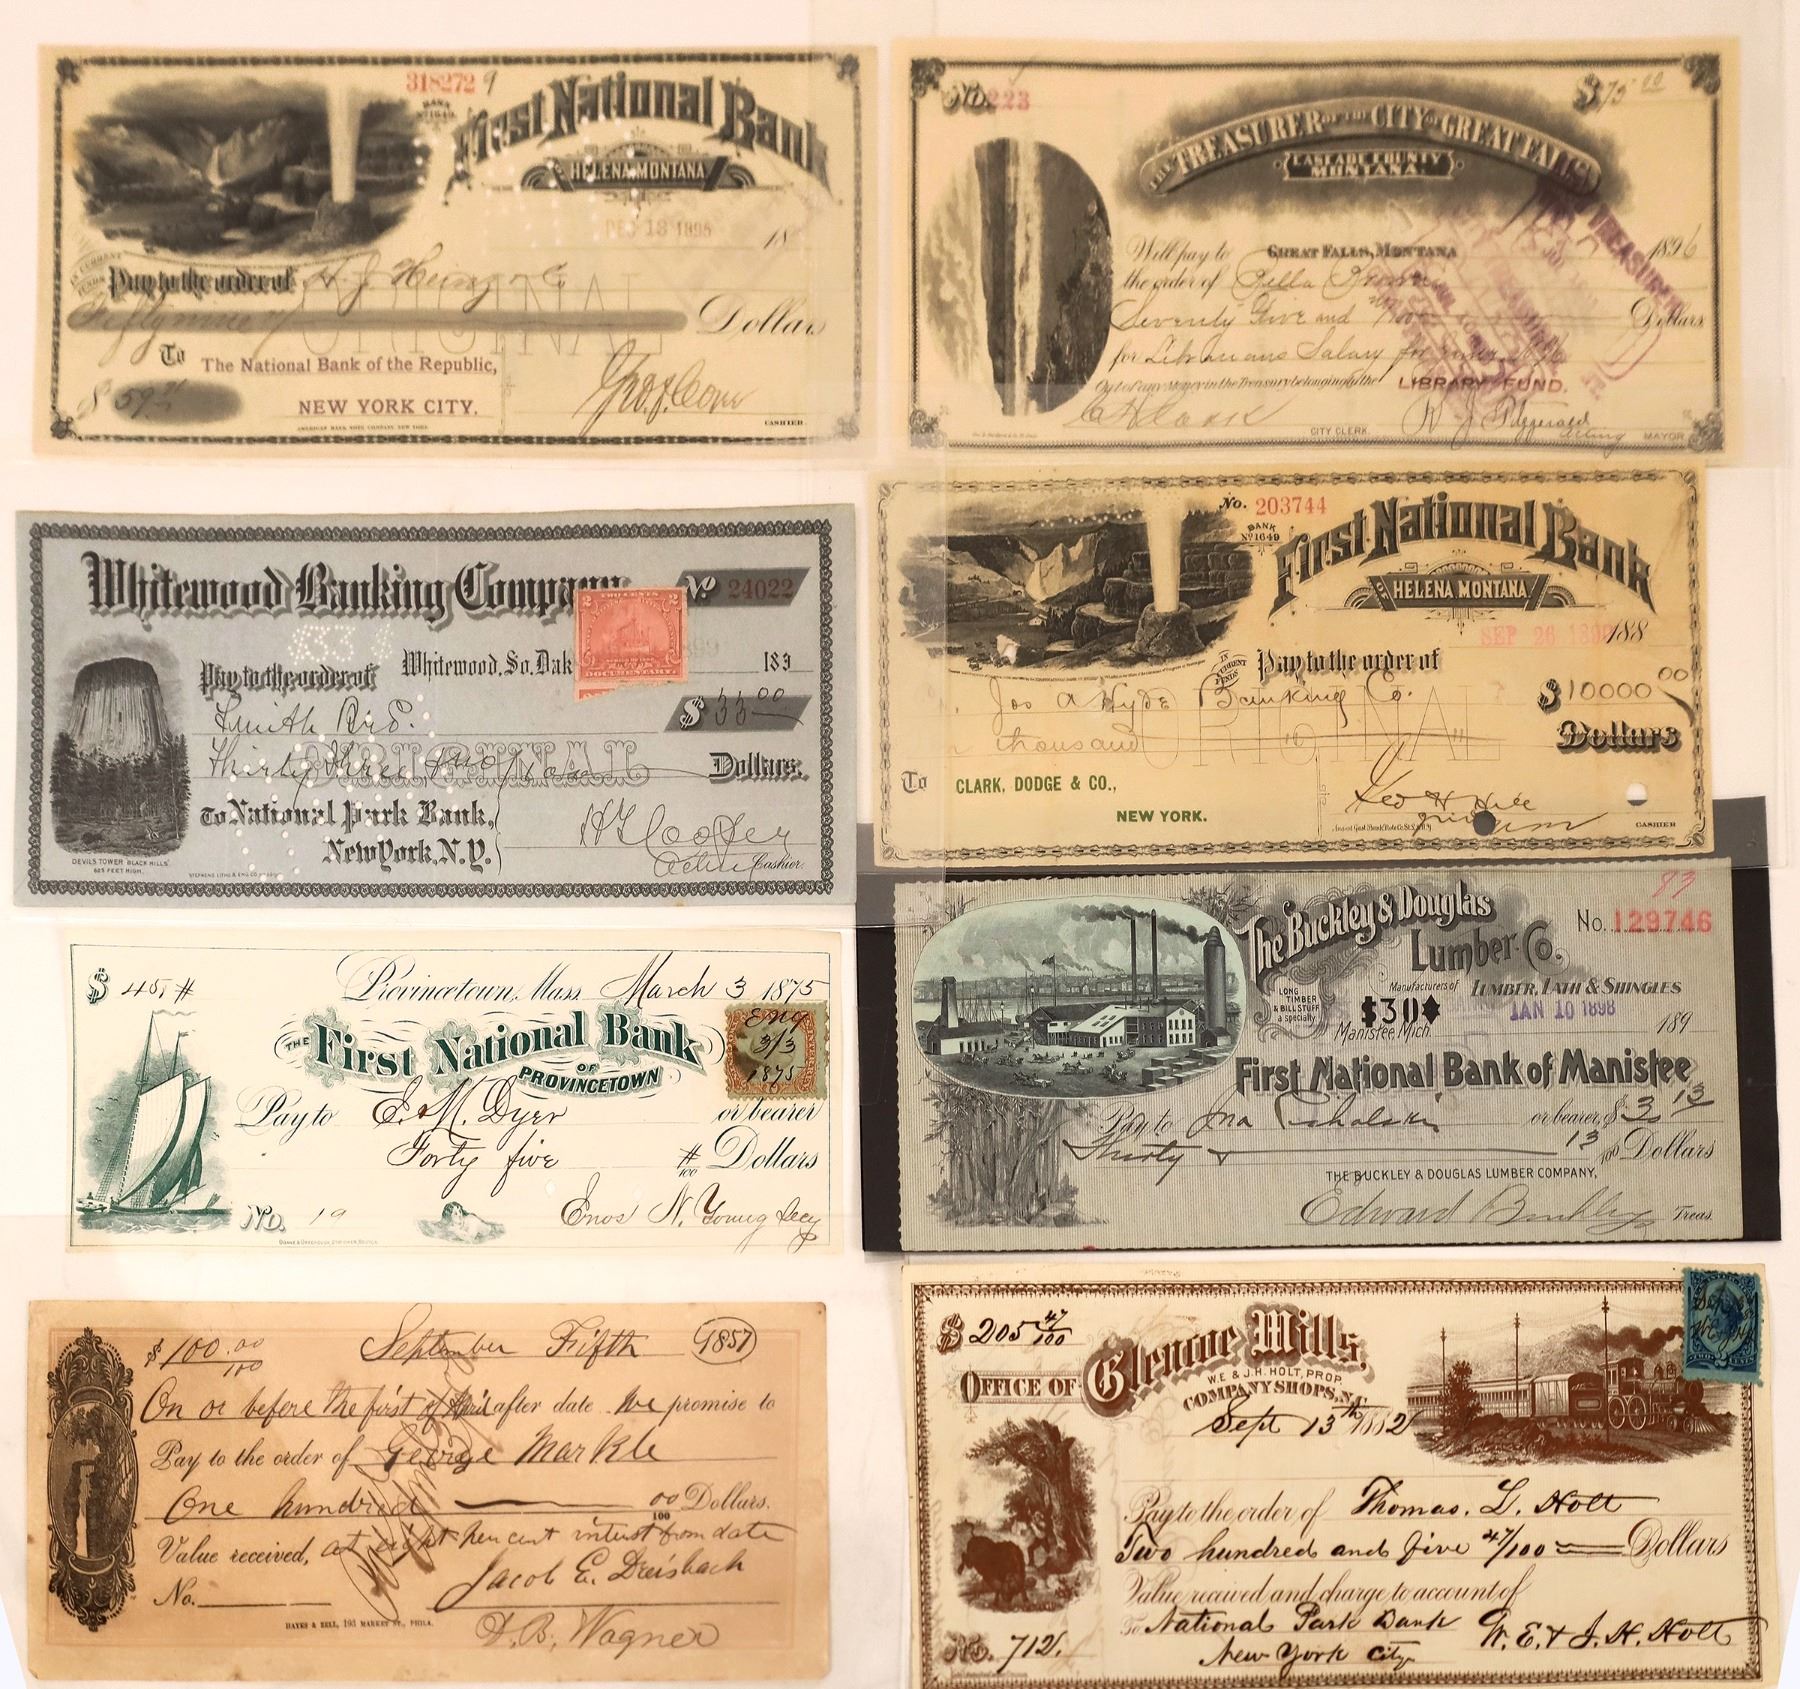 318272 9
BANK
No 1649
First National Bank
OF HELENA MONTANA
DEC 13 1895
18
IN CURRENT FUNDS
Pay to the order of H. J. Heinz & Co
ORIGINAL
Fifty nine
Dollars
To The National Bank of the Republic,
NEW YORK CITY.
$ 59
AMERICAN BANK NOTE COMPANY, NEW YORK.
CASHIER
No. 223
$75.00
THE TREASURER OF THE CITY OF GREAT FALLS
CASCADE COUNTY
MONTANA.
GREAT FALLS, MONTANA
1896
Will pay to
the order of Della
Seventy Five and /100 Dollars
for Librarians Salary for
Out of any Money in the Treasury belonging to the LIBRARY FUND.
CITY CLERK.
Fitzgerald
Acting MAYOR
Whitewood Banking Company
No 24022
TWO CENTS
2 2
DOCUMENTARY
Whitewood, So. Dak
189
Pay to the order of
$33.00
Smith Bro.
ORIGINAL
Thirty three
Dollars.
To National Park Bank,
New York, N.Y.
Cashier.
DEVILS TOWER "BLACK HILLS"
625 FEET HIGH.
No. 203744
BANK
No 1649
First National Bank
OF HELENA MONTANA
SEP 26
188
IN CURRENT FUNDS
Pay to the order of
Jos A Hyde Banking Co.
$10000 00
ORIGINAL
thousand
Dollars
To CLARK, DODGE & CO.,
NEW YORK.
Geo H Hill
CASHIER
$ 45, #
Provincetown, Mass. March 3 1875
THE First National Bank
OF PROVINCETOWN
3/3
1875
Pay to E. M. Dyer or bearer
Forty five #/100 Dollars
No. 19
Enos N. Young Secy
93
No. 129746
The Buckley & Douglas
Lumber Co.
Manufacturers of LUMBER, LATH & SHINGLES
LONG
TIMBER
& BILL STUFF
a specialty
$30
JAN 10 1898
Manistee, Mich.
189
First National Bank of Manistee
Pay to Jna or bearer, $30 13
Thirty & 13/100 Dollars
THE BUCKLEY & DOUGLAS LUMBER COMPANY,
Edward Buckley Treas.
$100.00/100
September Fifth 1857
On or before the first of April after date We promise to
Pay to the order of George Markle
One hundred 00/100 Dollars.
Value received, at eight per cent interest from date
No.
Jacob E. Dreisbach
HAYES & ZELL, 193 MARKET ST., PHILA.
D. B. Wagner
$205 47/100
OFFICE OF Glencoe Mills,
W.E & J.H. HOLT, PROP.
COMPANY SHOPS, N.C.
Sept 13th 1882
Pay to the order of Thomas. L. Holt
Two hundred and five 47/100 Dollars
Value received and charge to account of
To National Park Bank
New York City
W. E. & J. H. Holt
No. 712.